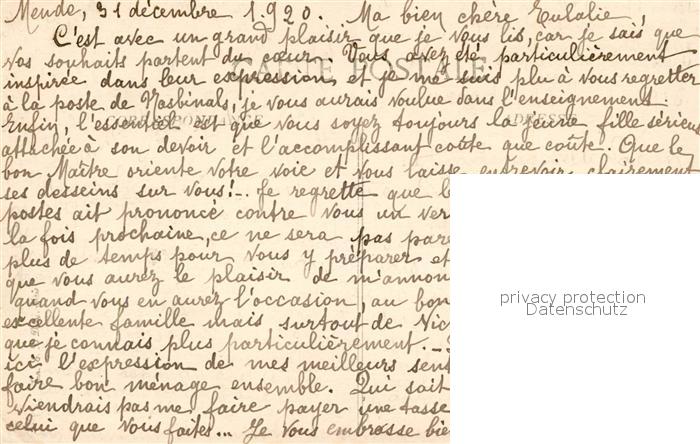 Mende, 31 décembre 1920. Ma bien chère Eulalie,
C'est avec un grand plaisir que je vous lis, car je sais que
vos souhaits partent du cœur. Vous avez été particulièrement
CARTE POSTALE
inspirée dans leur expression, et je me suis plu à vous regretter
à la poste de Nasbinals, je vous aurais voulue dans l'enseignement.
CORRESPONDANCE ADRESSE
Enfin, l'essentiel est que vous soyez toujours la jeune fille sérieuse
attachée à son devoir et l'accomplissant coûte que coûte. Que le
bon Maître oriente votre voie et vous laisse entrevoir clairement
ses desseins sur vous! _ Je regrette que l
postes ait prononcé contre vous un ver
la fois prochaine, ce ne sera pas pare
plus de temps pour vous y préparer et
que vous aurez le plaisir de m'annon
quand vous en aurez l'occasion, au bon
excellente famille mais surtout de Vic
que je connais plus particulièrement. _
ici l'expression de mes meilleurs sent
faire bon ménage ensemble. Qui sait
viendrais pas me faire payer une tasse
celui que vous faites... Je vous embrasse bie
privacy protection
Datenschutz